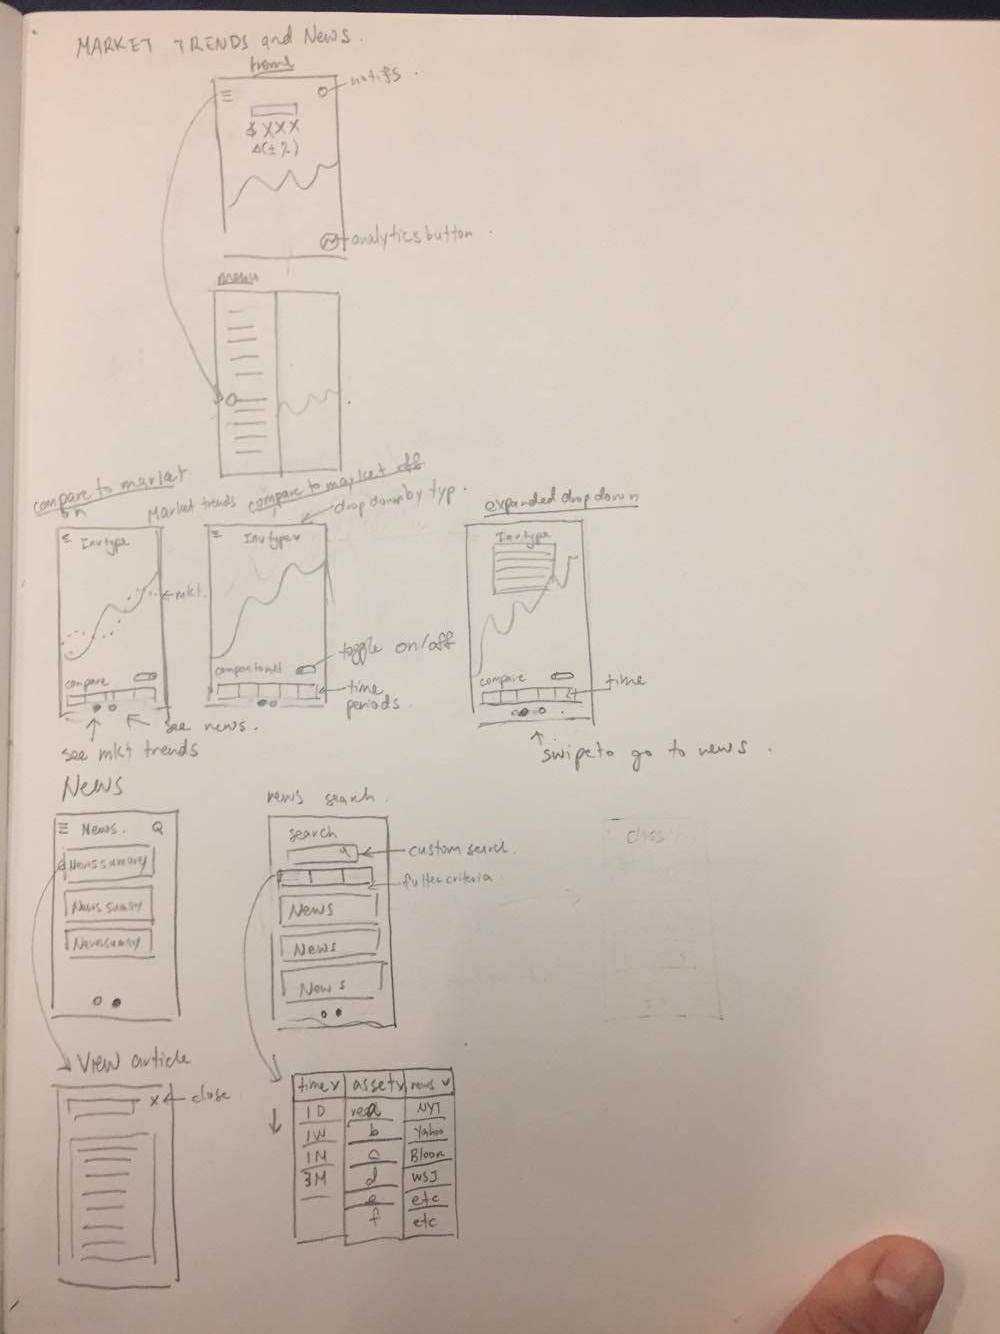 MARKET TRENDS and News.
home
notifs
$ XXX
Δ(± %)
analytics button
menu
compare to market on
Market trends
compare to market off
drop down by typ.
expanded drop down
Inv type
Inv type v
Inv type
mkt.
compare
compare to mkt
toggle on/off
compare
time
time periods
see news.
see mkt trends
swipe to go to news.
News
news search
News.
Q
search
custom search
News summary
filter criteria
News sumry
News
Newssumry
News
News
class
View article
x
close
time v
asset v
news v
1D
a
NYT
1W
b
Yahoo
1M
c
Bloom
3M
d
WSJ
e
etc
f
etc